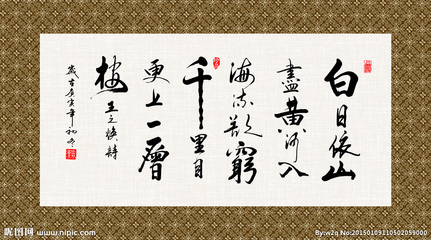 白日依山
盡黄河入
海流欲窮
千里目
更上一層
樓 王之煥詩
昵图网 www.nipic.com
By:w2q No:20150109110502059000